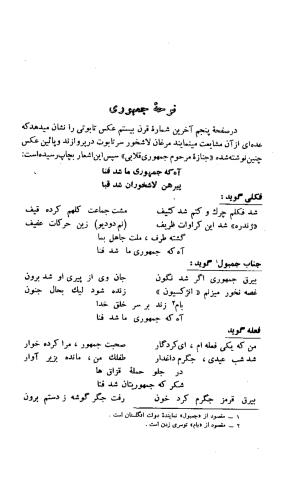 نوحهٔ جمهوری
درصفحهٔ پنجم آخرین شمارهٔ قرن بیستم عکس تابوتی را نشان میدهدکه
عده‌ای ازآن مشایعت مینمایند مرغان لاشخور سرتابوت درپروازند وپائین عکس
چنین نوشته‌شده «جنازهٔ مرحوم جمهوری‌قلابی» سپس‌این‌اشعار بچاپ‌رسیده‌است:
آه‌که جمهوری ما شد فنا
پیرهن لاشخوران شد قبا
فکلی گوید:
شد فکلم چرك و کتم شد کثیف مشت‌جماعت کلهم کرده قیف
«ژندره» شد این کراوات ظریف (ام‌دودیو) زین حرکات عفیف
گشته طرف، ملت جاهل بما
آه که جمهوری ما شد فنا
جناب جمبول۱ گوید:
بیرق جمهوری اگر شد نگون جان وی از پیری او شد برون
غصه نخور میزنم «انژکسیون» زنده شود لیك بحال جنون
بام۲ زند بر سر خلق خدا
آه که جمهوری ما شد فنا
فعله گوید
من که یکی فعله ام، ای‌کردگار صحبت جمهور، مرا کرده خوار
شد شب عیدی، جگرم داغدار طفلك من، مانده بزیر آوار
در جلو حملهٔ قزاق ها
شکر که جمهوریتان شد فنا
بیرق قرمز جگرم کرد خون رفت جگر گوشه ز دستم برون
۱ – مقصود از «جمبول» نمایندهٔ دولت انگلستان است.
۲ – مقصود از «بام» توسری زدن است.